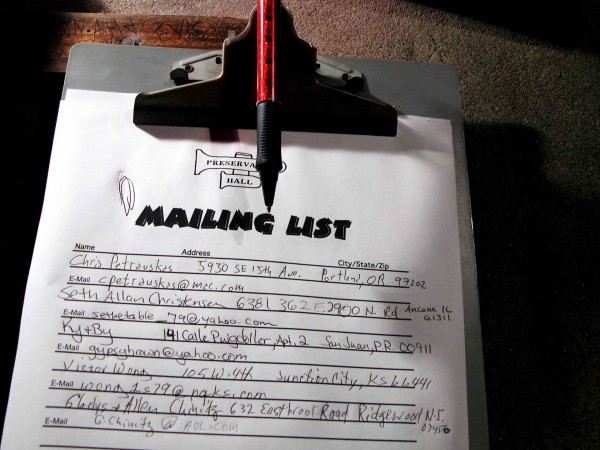 PRESERVA
HALL
MAILING LIST
Name Address City/State/Zip
Chris Petrauskas 5930 SE 15th Ave. Portland, OR 97202
E-Mail cpetrauskas@mac.com
Seth Allan Christensen 6381 362 E. 2900 N. Rd Ancona IL 61311
E-Mail sethetable_79@yahoo.com
Ky + By 141 Calle Puigdoller, Apt. 2 San Juan, P.R. 00911
E-Mail gypsybrown@yahoo.com
Victor Wong 105 W. 4th Junction City, KS 66441
E-Mail @nqks.com
Gladys + Allen Chimitz 632 Eastbrook Road Ridgewood N.J. 07450
E-Mail G.Chimitz @ AOL.com